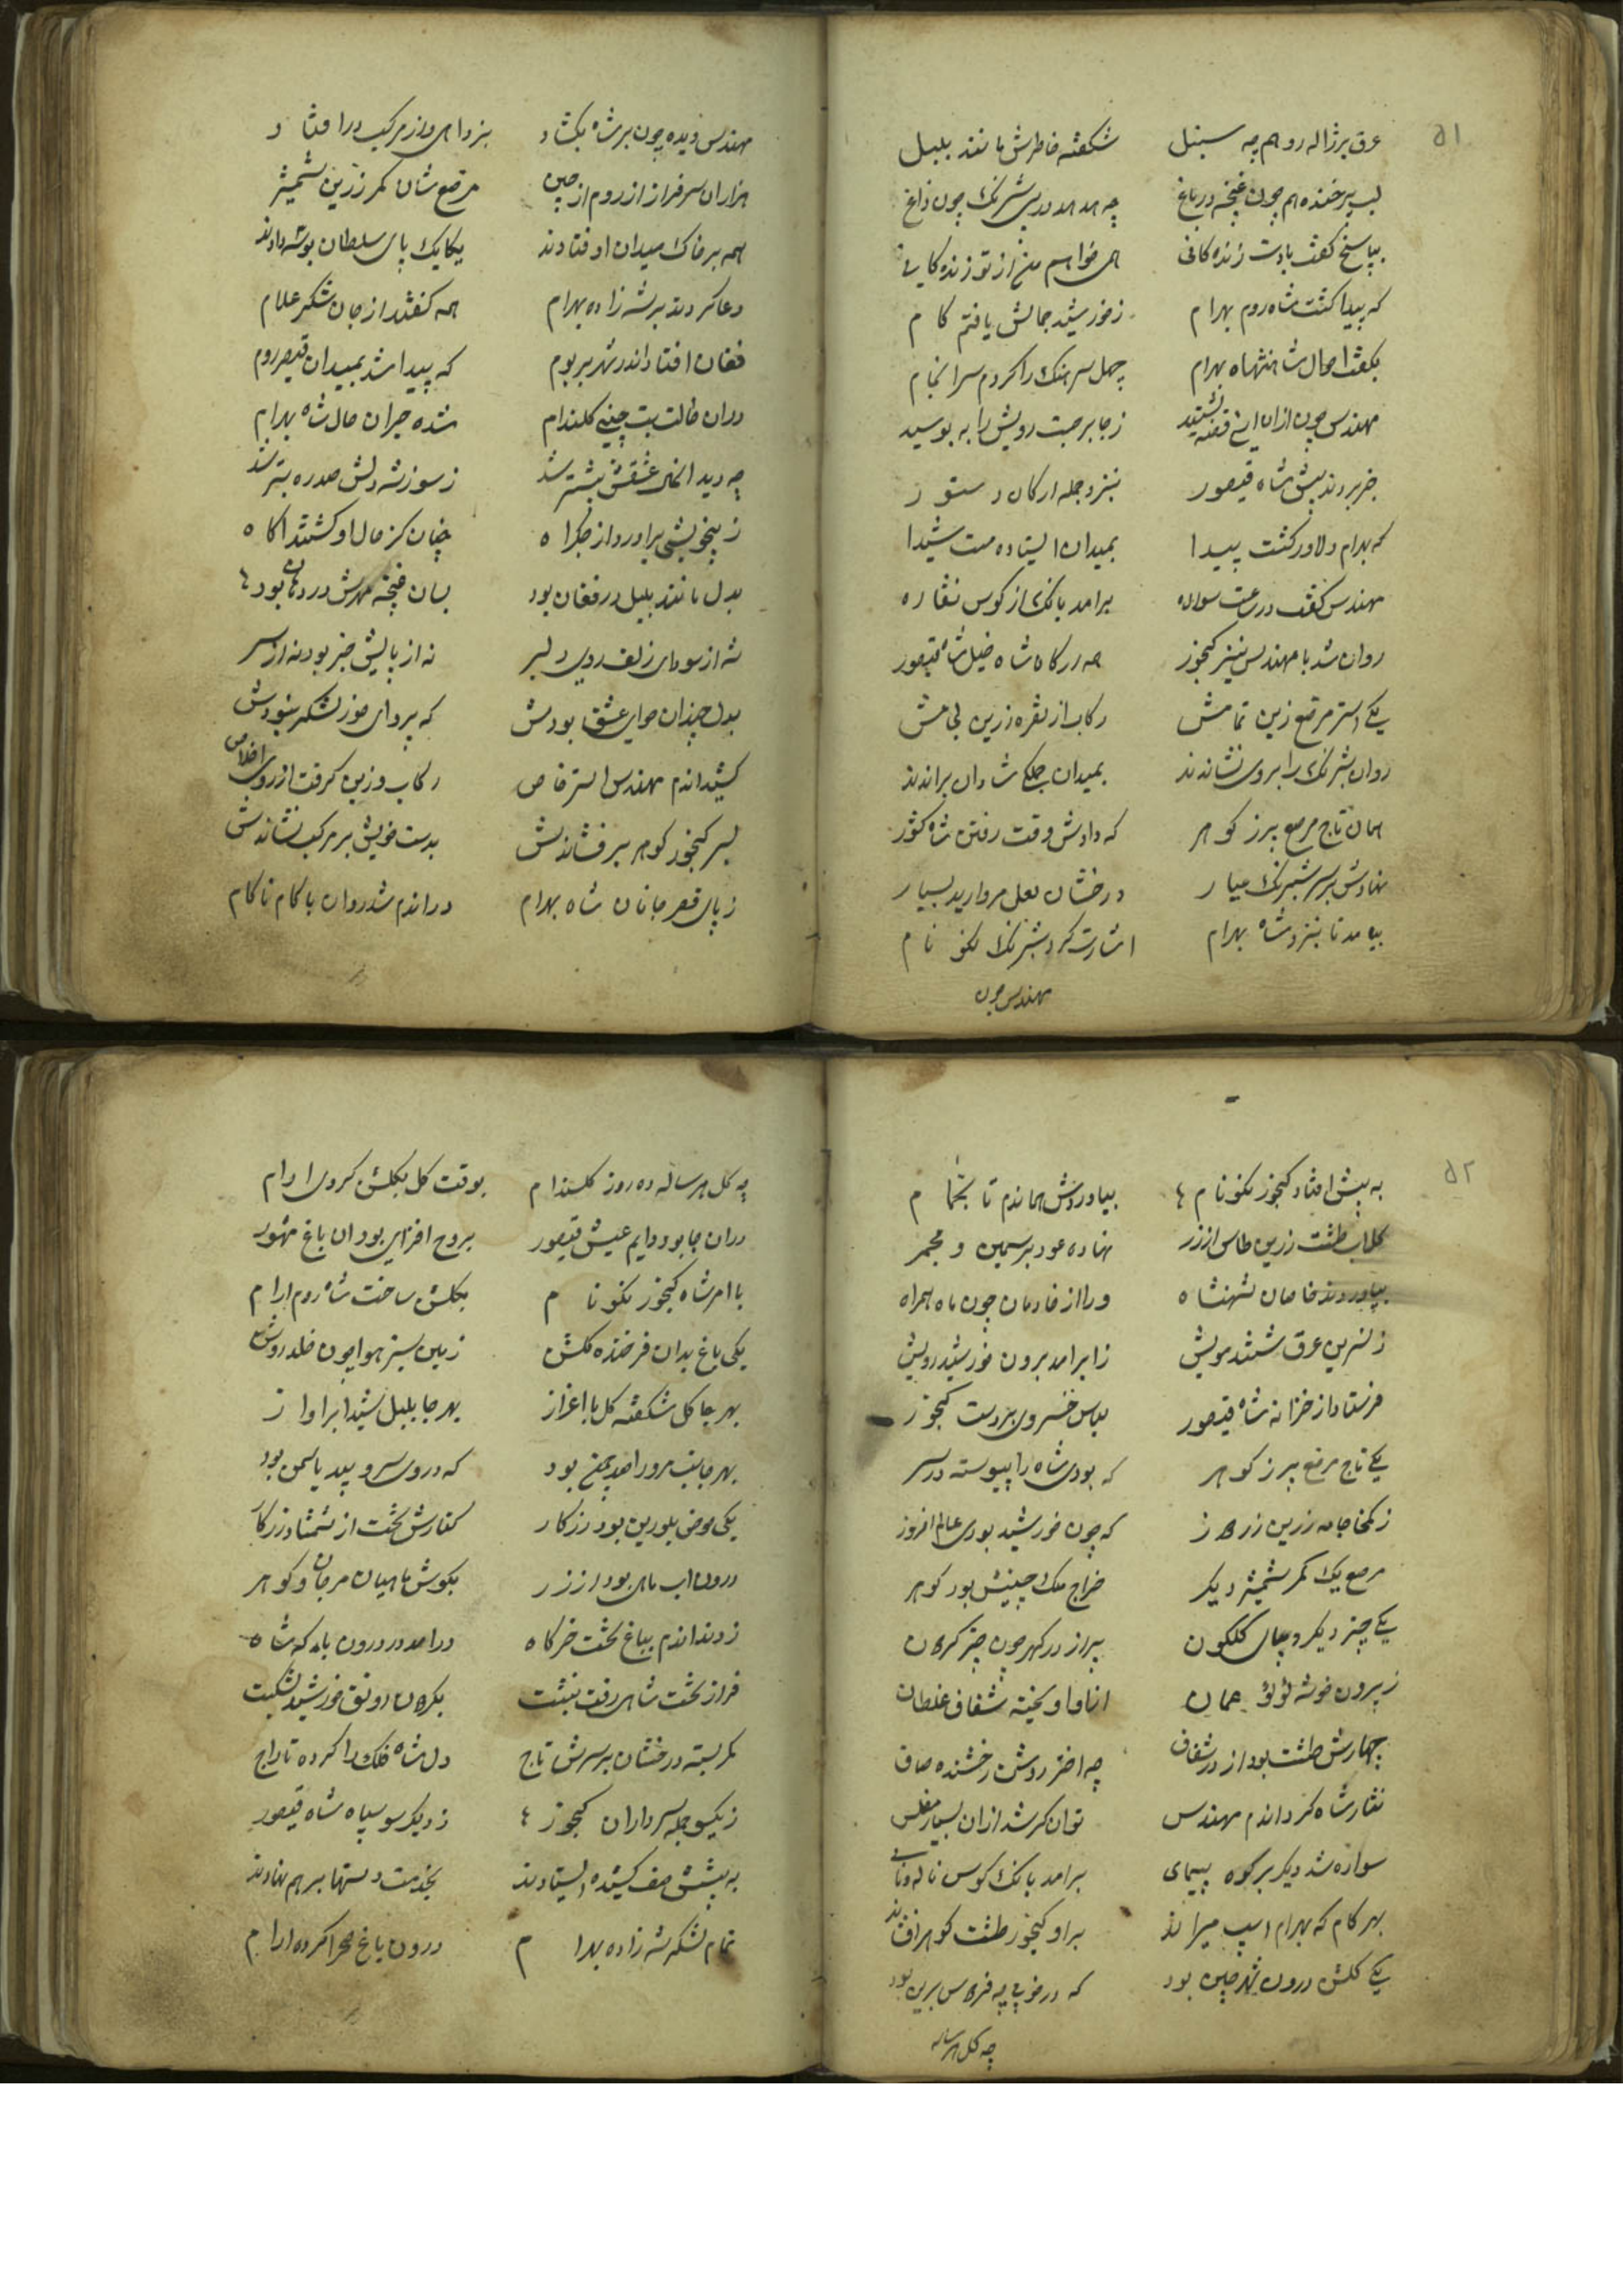 ۵۱
عرق بر ژاله رو هم چه سنبل شکفته خاطرش مانند بلبل
لب پر خنده هم چون غنچه در باغ چه شبرنگ چون زاغ
بپاسخ گفت بادت زنده کانی همی خواهم من از تو زنده کانی
که پیدا گشت شاه روم بهرام ز خورشید جمالش یافتم کام
بگفت احوال شاهنشاه بهرام چهل سرهنگ را کردم سرانجام
مهندس چون ازان این قصه بشنید ز جا برجست رویش را ببوسید
خبر بردند پیش شاه قیصور بنزد جمله ارکان دستور
که بهرام دلاور گشت پیدا بمیدان ایستاده مست شیدا
مهندس گفت در ساعت سواره برامد بانک از کوس نقاره
روان شد با مهندس نیز کنجور همه درگاه شاه خیل شاه قیصور
یکی استر مرصع زین تمامش رکاب از نقره زرین لجامش
روان شبرنگ را بروی نشاندند بمیدان جملگی شادان براندند
همان تاج مرصع پر ز کوهر که دادش وقت رفتن شاه کشور
نهادش بر سر شبرنگ عیار درخشان لعل مروارید بسیار
بیامد تا بنزد شاه بهرام اشارت کرد شبرنگ نکو نام
مهندس چون
مهندس دیده چون بر شاه بکشاد بنزدا از مرکب در افتاد
هزاران سرفراز از روم از چین مرصع شان کمر زرین شمشیر
همه بر خاک میدان اوفتادند یکایک پای سلطان بوسه دادند
دعا کردند بر شه زاده بهرام همه گفتند از جان شکر علام
فغان افتاد اندر شهر بر بوم که پیدا شد بمیدان قیصر روم
دران حالت بت چینی کلندام شده حیران حال شاه بهرام
چه دید عشقش بیشتر شد ز سوزش دلش صد ره بتر شد
ز بیخویشی براورد از جگر اه چنان کز حال او کشتند اکاه
بدل مانند بلبل در فغان بود بسان غنچه مهرش در دهان بود
شه از سودای زلف روی دلبر نه از پایش خبر بود نه از سر
بدل چندان هوای عشق بودش که پروای خور لشکر نبودش
کشید اندم مهندس استر خاص رکاب و زین کرفت از روی اخلاص
بسر کنجور کوهر برفشاندش بدست خویش بر مرکب نشاندش
ز پای قصر جانان شاه بهرام دراندم شد روان با کام ناکام
۵۲
به پیش افتاد کنجور نکو نام بیاوردش هماندم تا بحمام
کلاب طشت زرین طاس از زر نهاده عود بر سیمین و مجمر
بیاوردند خاصان شهنشاه ورا از خادمان چون ماه همراه
ز نسرین عرق شستند مویش ز ابر امد برون خورشید رویش
فرستاد از خزانه شاه قیصور لباس خسروی بر دست کنجور
یکی تاج مرصع پر ز کوهر که بودی شاه را پیوسته در سر
ز کمخا جامه زرین زردوز که چون خورشید بودی عالم افروز
مرصع یک کمر شمشیر دیگر خراج ملک چینش بود کوهر
یکی چتر دیگر دیبای کلکون پر از در کهر چون چتر کردون
ز پیرون خوشه لؤلؤ عمان انا و اویخته شفاف غلطان
چهارش طشت بود از در شفاف چه اختر روشن رخشنده صاف
نثار شاه کرد اندم مهندس توان کر شد ازان بسیار مفلس
سواره شد دیگر بر کوه پیمای برامد بانک کوس ناله و نای
بهر کام که بهرام اسپ میراند براو کنجور طشت کوهر افشاند
یکی کلشن درون شهر چین بود که در خوبی چه فردوس برین بود
چه کل هر ساله
چه کل هر ساله ده روز کلندام بوقت کل بکلشن کردی ارام
دران جا بود دایم عیش قیصور بروح افزای بود ان باغ مشهور
با امر شاه کنجور نکو نام بکلشن ساخت شاه روم ارام
یکی باغ بدان فرخنده کلشن زمین سبز هوا چون خلد روشن
بهر جا کل شکفته کل با اغزاز بهر جا بلبل شیدا براواز
بهر جانب مرو را صد چمن بود که در وی سرو بید یاسمن بود
یکی حوض بلورین بود زرکار کنارش تخت از شمشاد زرکار
درون اب ماهی بود از زر بکوش ماهیان مرجان و کوهر
زدند اندم بباغ تخت خرکاه درامد در درون بارکه شاه
فراز تخت شاهی رفت بنشست بکردون رونق خورشید بشکست
کمر بسته درخشان بر سرش تاج دل شاه فلک را کرده تاراج
ز یکسو جمله سرداران کنجور ز دیگر سو سپاه شاه قیصور
به پیشش صف کشیده ایستادند بخدمت دستها بر هم نهادند
تمام لشکر شه زاده بهرام درون باغ صحرا کرده ارام